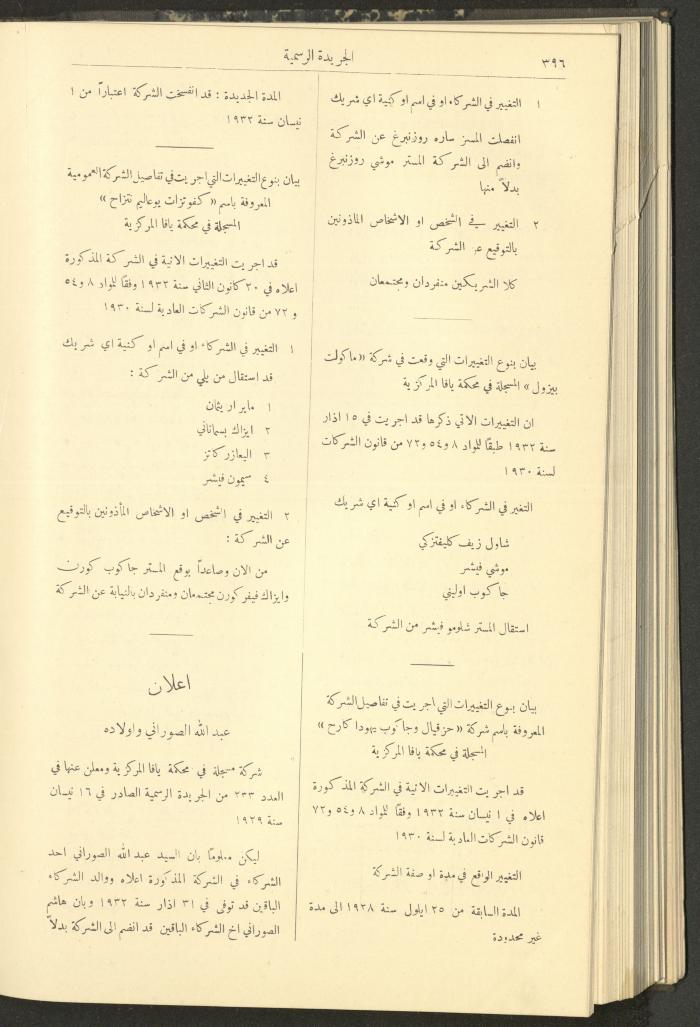 ٣٩٦
الجريدة الرسمية
١ التغيير في الشركاء او في اسم او كنية اي شريك
انفصلت المسز ساره روزنبرغ عن الشركة
وانضم الى الشركة المستر موشي روزنبرغ
بدلاً منها
٢ التغيير في الشخص او الاشخاص الماذونين
بالتوقيع عن الشركة
كلا الشريكين منفردان ومجتمعان
بيان بنوع التغييرات التي وقعت في شركة «ماكولت
بيزول» المسجلة في محكمة يافا المركزية
ان التغييرات الاتي ذكرها قد اجريت في ١٥ اذار
سنة ١٩٣٢ طبقًا للمواد ٨ و٥٤ و٧٢ من قانون الشركات
لسنة ١٩٣٠
التغير في الشركاء او في اسم او كنية اي شريك
شاول زيف كليفتزكي
موشي فيشر
جاكوب اوليني
استقال المستر شلومو فيشر من الشركة
بيان بنوع التغييرات التي اجريت في تفاصيل الشركة
المعروفة باسم شركة «حزقيال وجاكوب يهودا كارح»
المسجلة في محكمة يافا المركزية
قد اجريت التغييرات الاتية في الشركة المذكورة
اعلاه في ١ نيسان سنة ١٩٣٢ وفقًا للمواد ٨ و٥٤ و٧٢
قانون الشركات العادية لسنة ١٩٣٠
التغيير الواقع في مدة او صفة الشركة
المدة السابقة من ٢٥ ايلول سنة ١٩٢٨ الى مدة
غير محدودة
المدة الجديدة : قد انفسخت الشركة اعتباراً من ١
نيسان سنة ١٩٣٢
بيان بنوع التغييرات التي اجريت في تفاصيل الشركة العمومية
المعروفة باسم «كفوتزات يوعاليم نتزاح»
المسجلة في محكمة يافا المركزية
قد اجريت التغييرات الاتية في الشركة المذكورة
اعلاه في ٢٠ كانون الثاني سنة ١٩٣٢ وفقًا للمواد ٨ و٥٤
و ٧٢ من قانون الشركات العادية لسنة ١٩٣٠
١ التغيير في الشركاء او في اسم او كنية اي شريك
قد استقال من يلي من الشركة :
١ ماير اريثمان
٢ ايزاك بسماناني
٣ اليعازر كاتز
٤ سيمون فيشر
٢ التغيير في الشخص او الاشخاص المأذونين بالتوقيع
عن الشركة :
من الان وصاعداً يوقع المستر جاكوب كورن
وايزاك فيفركورن مجتمعان ومنفردان بالنيابة عن الشركة
اعلان
عبد الله الصوراني واولاده
شركة مسجلة في محكمة يافا المركزية ومعلن عنها في
العدد ٢٣٣ من الجريدة الرسمية الصادر في ١٦ نيسان
سنة ١٩٢٩
ليكن معلومًا بان السيد عبد الله الصوراني احد
الشركاء في الشركة المذكورة اعلاه ووالد الشركاء
الباقين قد توفى في ٣١ اذار سنة ١٩٣٢ وبان هاشم
الصوراني اخ الشركاء الباقين قد انضم الى الشركة بدلاً